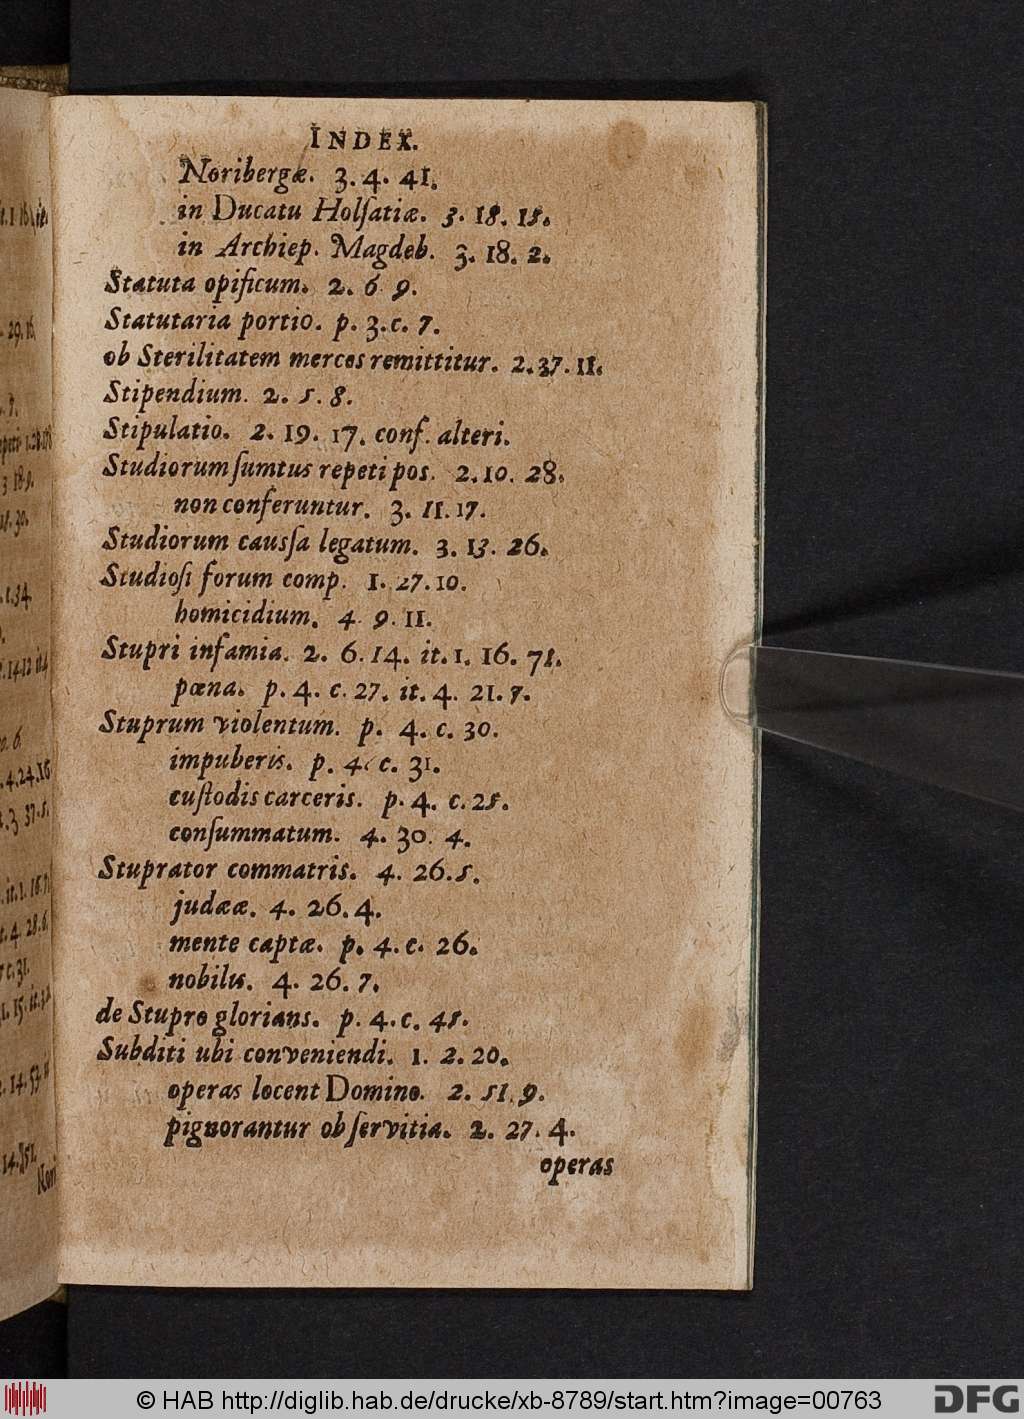 INDEX.
Noribergæ. 3. 4. 41.
in Ducatu Holſatiæ. 3. 18. 15.
in Archiep. Magdeb. 3. 18. 2.
Statuta opificum. 2. 6 9.
Statutaria portio. p. 3. c. 7.
ob Sterilitatem merces remittitur. 2. 37. 11.
Stipendium. 2. 5. 8.
Stipulatio. 2. 19. 17. conf. alteri.
Studiorum ſumtus repeti pos. 2. 10. 28.
non conferuntur. 3. 11. 17.
Studiorum cauſſa legatum. 3. 13. 26.
Studioſi forum comp. 1. 27. 10.
homicidium. 4. 9. 11.
Stupri infamia. 2. 6. 14. it. 1. 16. 71.
pœna. p. 4. c. 27. it. 4. 21. 7.
Stuprum violentum. p. 4. c. 30.
impuberis. p. 4. c. 31.
cuſtodis carceris. p. 4. c. 25.
conſummatum. 4. 30. 4.
Stuprator commatris. 4. 26. 5.
judææ. 4. 26. 4.
mente captæ. p. 4. c. 26.
nobilis. 4. 26. 7.
de Stupro glorians. p. 4. c. 45.
Subditi ubi conveniendi. 1. 2. 20.
operas locent Domino. 2. 51. 9.
pignorantur ob ſervitia. 2. 27. 4.
operas
© HAB http://diglib.hab.de/drucke/xb-8789/start.htm?image=00763
DFG